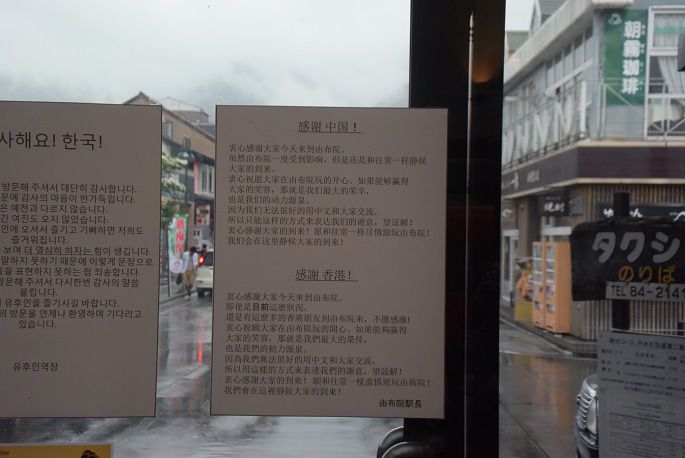 사해요! 한국!
방문해 주셔서 대단히 감사합니다.
문에 감사의 마음이 한가득입니다.
은 예전과 다르지 않습니다.
간 여진도 오지 않았습니다.
인에 오셔서 즐기고 기뻐하면 저희도
즐거워집니다.
보며 더 열심히 하자는 힘이 생깁니다.
말하지 못하기 때문에 이렇게 문장으로
음을 표현하지 못하는 점 죄송합니다.
방문해 주셔서 다시한번 감사의 말씀
올립니다.
유후인을 즐기시길 바랍니다.
의 방문을 언제나 환영하며 기다리고
있습니다.
유후인역장
感谢 中国！
衷心感谢大家今天来到由布院。
虽然由布院一度受到影响，但是还是和往常一样静候
大家的到来。
衷心祝愿大家在由布院玩的开心。如果能够赢得
大家的笑容，那就是我们最大的荣幸，
也是我们的动力源泉。
因为我们无法很好的用中文和大家交流，
所以只能这样的方式来表达我们的谢意，望谅解！
衷心感谢大家的到来！愿和往常一样尽情游玩由布院！
我们会在这里静候大家的到来！
感謝 香港！
衷心感謝大家今天來到由布院。
即使是目前這麼狀況，
還是有這麼多的香港朋友到由布院來，不勝感激！
衷心祝願大家在由布院玩的開心。如果能夠贏得
大家的笑容，那就是我們最大的榮倖，
也是我們的動力源泉。
因為我們無法很好的用中文和大家交流，
所以用這樣的方式來表達我們的謝意，望諒解！
衷心感謝大家的到來！願和往常一樣盡情遊玩由佈院！
我們會在這裡靜候大家的到來！
由布院駅長
朝霧珈琲
タクシ
のりば
TEL 84-2141